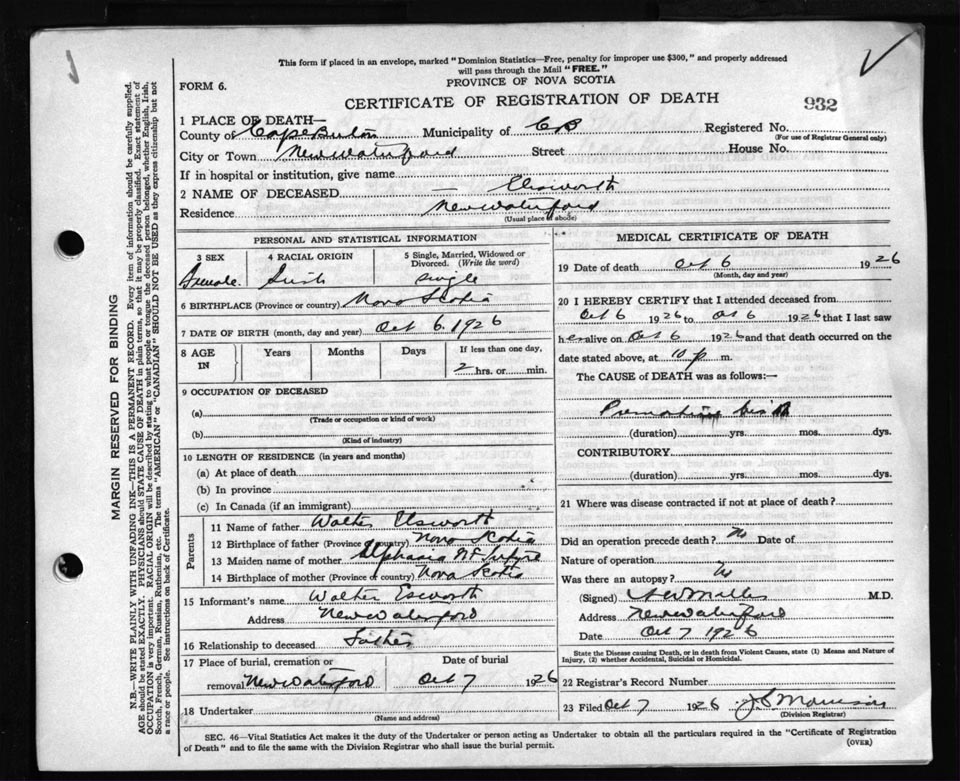 This form if placed in an envelope, marked "Dominion Statistics—Free, penalty for improper use $300," and properly addressed
will pass through the Mail "FREE."
FORM 6.
PROVINCE OF NOVA SCOTIA
CERTIFICATE OF REGISTRATION OF DEATH
932
1 PLACE OF DEATH—
County of Cape Breton Municipality of C B Registered No.
(For use of Registrar General only)
City or Town New Waterford Street House No.
If in hospital or institution, give name
2 NAME OF DECEASED — Elsworth
Residence New Waterford
(Usual place of abode)
PERSONAL AND STATISTICAL INFORMATION
3 SEX
Female
4 RACIAL ORIGIN
Irish
5 Single, Married, Widowed or
Divorced. (Write the word)
Single
6 BIRTHPLACE (Province or country) Nova Scotia
7 DATE OF BIRTH (month, day and year) Oct 6. 1926
8 AGE
IN
Years
Months
Days
If less than one day,
2 hrs. or min.
9 OCCUPATION OF DECEASED
(a)
(Trade or occupation or kind of work)
(b)
(Kind of industry)
10 LENGTH OF RESIDENCE (in years and months)
(a) At place of death
(b) In province
(c) In Canada (if an immigrant)
Parents
11 Name of father Walter Elsworth
12 Birthplace of father (Province or country) Nova Scotia
13 Maiden name of mother
14 Birthplace of mother (Province or country) Nova Scotia
15 Informant's name Walter Esworth
Address New Waterford
16 Relationship to deceased Father
17 Place of burial, cremation or
removal New Waterford
Date of burial
Oct 7 1926
18 Undertaker
(Name and address)
MEDICAL CERTIFICATE OF DEATH
19 Date of death Oct 6 1926
(Month, day and year)
20 I HEREBY CERTIFY that I attended deceased from
Oct 6 1926 to Oct 6 1926 that I last saw
her alive on Oct 6 1926 and that death occurred on the
date stated above, at 10 p m.
The CAUSE of DEATH was as follows:—
Premature birth
(duration) yrs. mos. dys.
CONTRIBUTORY
(duration) yrs. mos. dys.
21 Where was disease contracted if not at place of death?
Did an operation precede death? No Date of
Nature of operation
Was there an autopsy? No
(Signed) M.D.
Address New Waterford
Date Oct 7 1926
State the Disease causing Death, or in death from Violent Causes, state (1) Means and Nature of
Injury, (2) whether Accidental, Suicidal or Homicidal.
22 Registrar's Record Number
23 Filed Oct 7 1926
(Division Registrar)
SEC. 46—Vital Statistics Act makes it the duty of the Undertaker or person acting as Undertaker to obtain all the particulars required in the "Certificate of Registration
of Death" and to file the same with the Division Registrar who shall issue the burial permit.
(OVER)
MARGIN RESERVED FOR BINDING
N.B.—WRITE PLAINLY WITH UNFADING INK—THIS IS A PERMANENT RECORD. Every item of information should be carefully supplied.
AGE should be stated EXACTLY. PHYSICIANS should STATE CAUSE OF DEATH in plain terms, so that it may be properly classified. Exact statement of
OCCUPATION is very important. RACIAL ORIGIN will be described by stating to what people or tongue the deceased person belonged, whether English, Irish,
Scotch, French, German, Russian, Ruthenian, etc. The terms "AMERICAN" or "CANADIAN" SHOULD NOT BE USED as they express citizenship but not
a race or people. See instructions on back of Certificate.